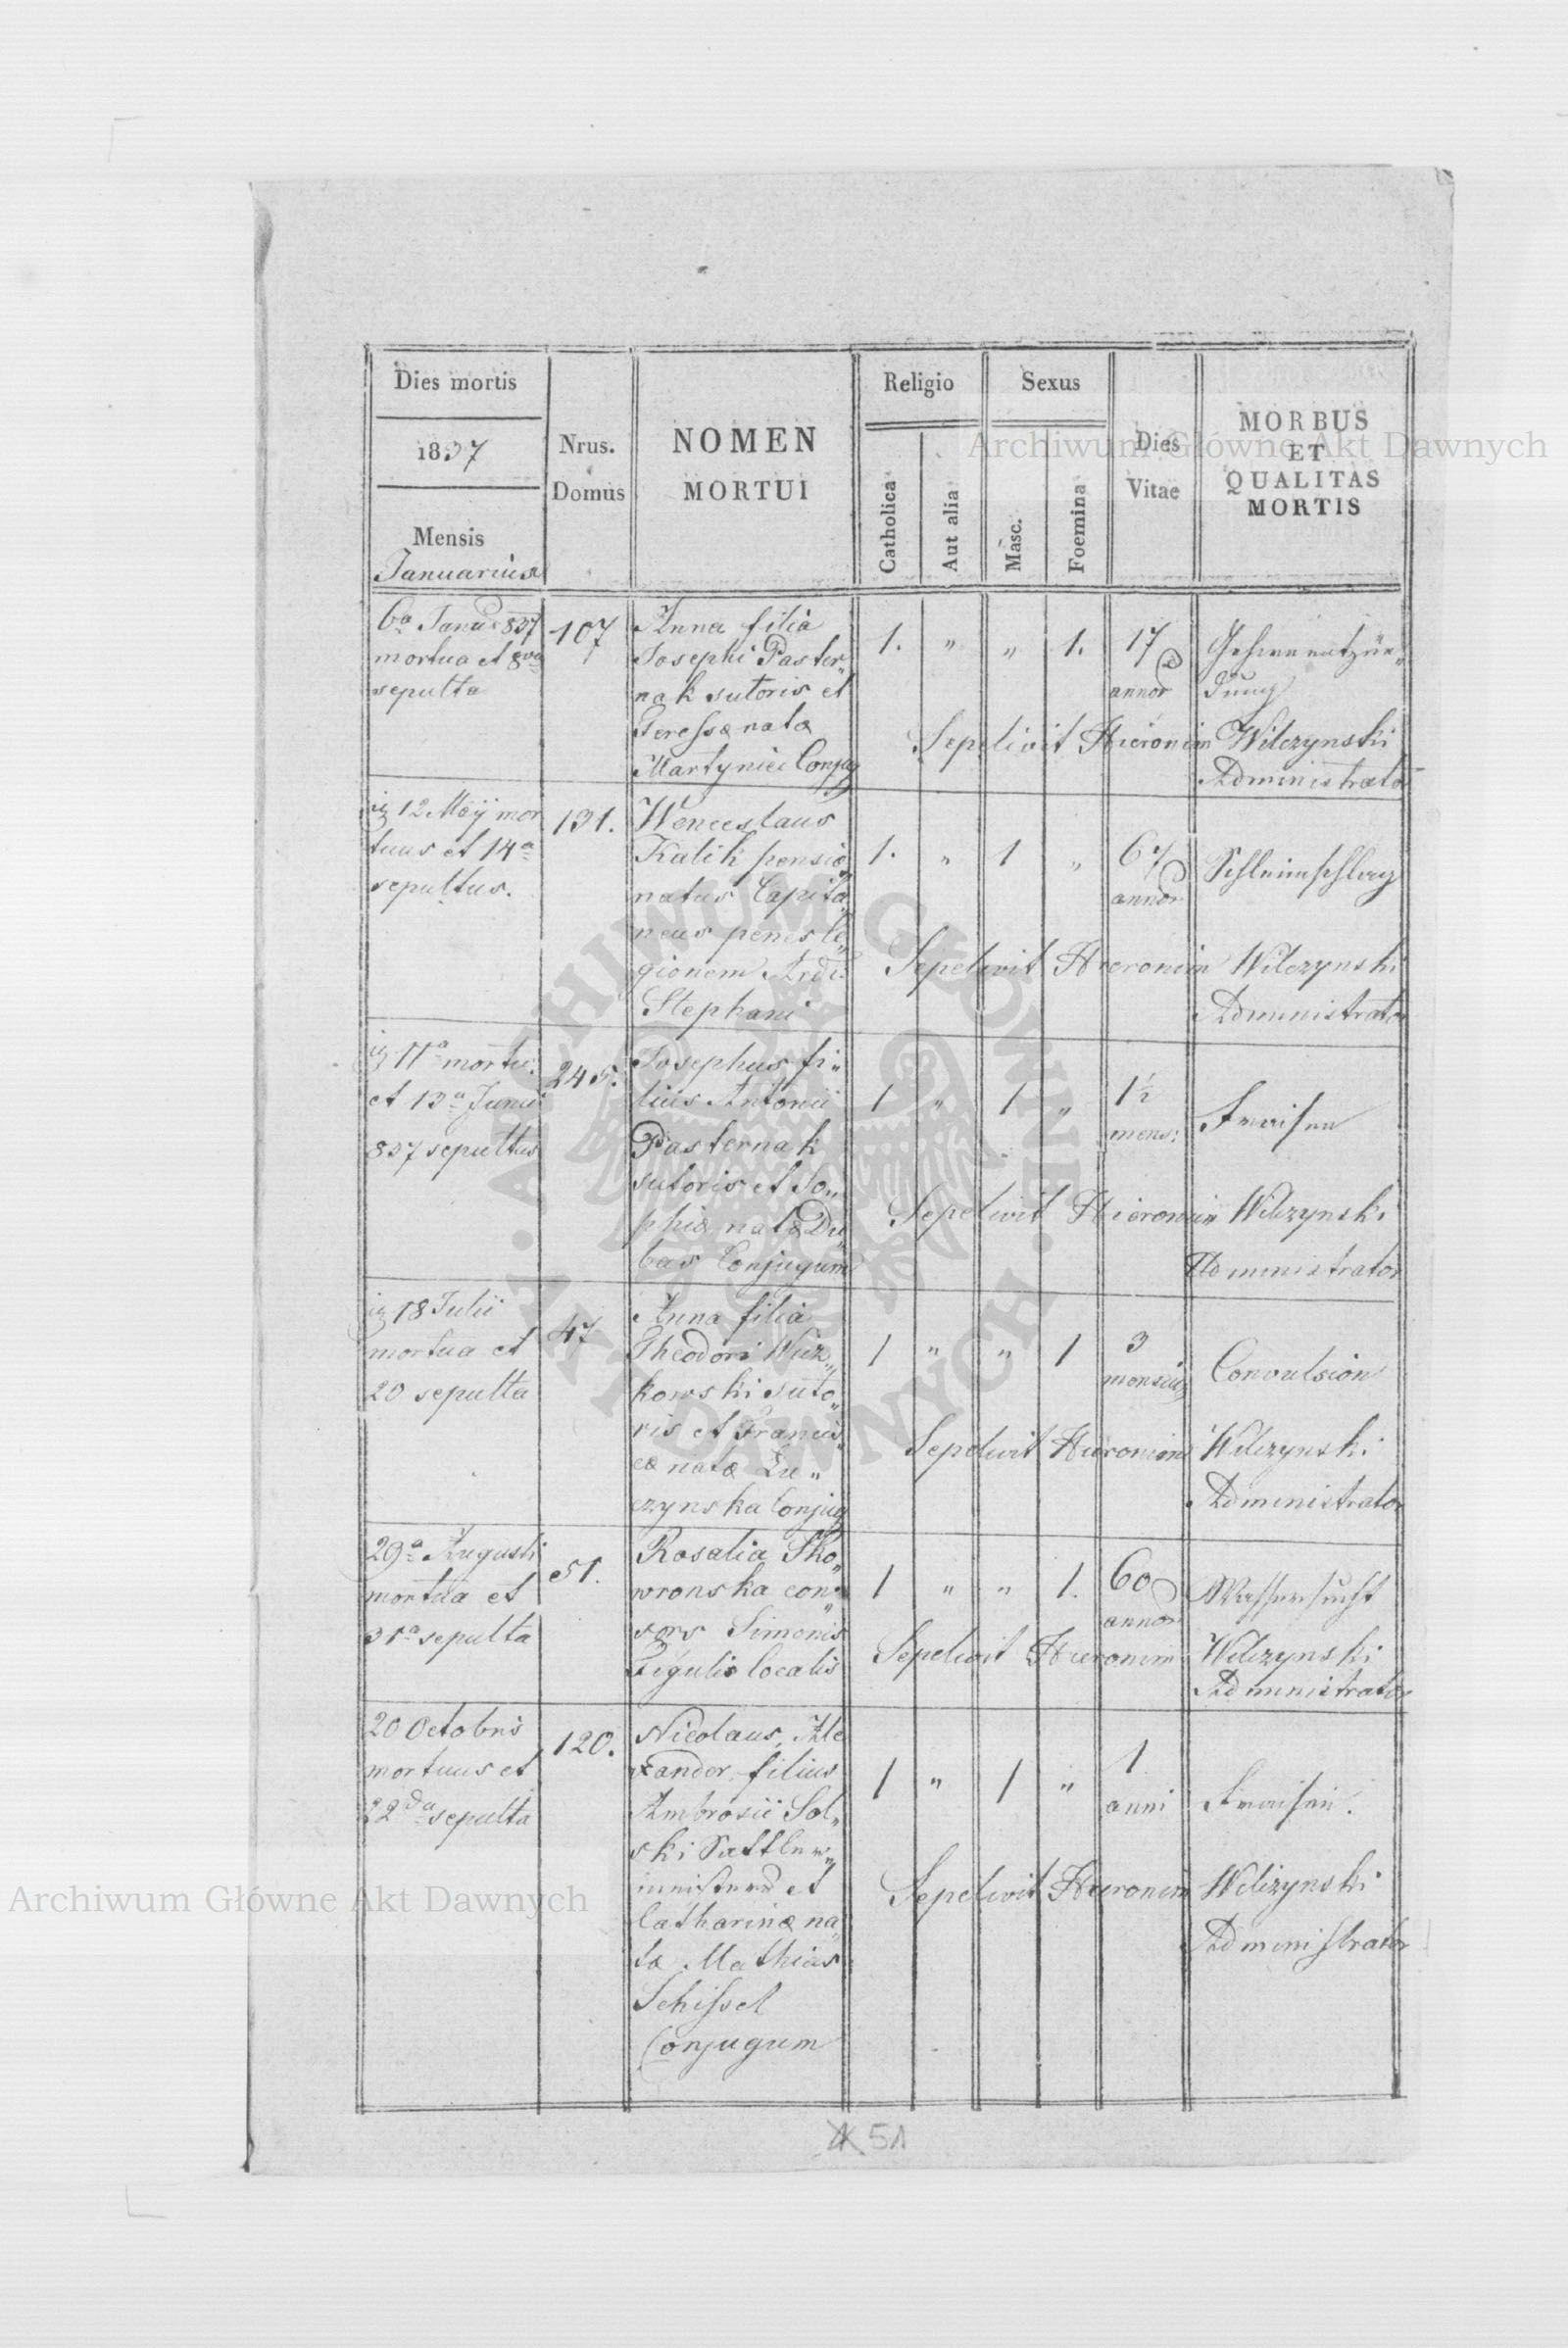 Dies mortis
1837
Mensis
Januarius
Nrus.
Domus
NOMEN
MORTUI
Religio
Catholica
Aut alia
Sexus
Masc.
Foemina
Dies
Vitae
MORBUS
ET
QUALITAS
MORTIS
6a Janu 837
mortua et 8va
sepulta
107
Anna filia
Josephi Paster„
nak sutoris et
Teressæ natæ
Martynici Conjug
1. „ „ 1.
17
annor
Gehirnentzün„
dung
Sepelivit Hieronim Wilczynski
Administrator
12 Maÿ mor
tuus et 14a
sepultus.
131.
Wenceslaus
Kalik pensio„
natus Capita„
neus penes le„
gionem Ardu
Stephani
1. „ 1 „
67
annor
Schleimschlag
Sepelivit Hieronim Wilczynski
Administrator
11a mortu:
et 13a Junii
837 sepultus
245.
Josephus fi„
lius Antonii
Pasternak
sutoris et So„
phiæ natæ Du„
bas Conjugum
1 „ 1 „
1½
mens:
Fraisen
Sepelivit Hieronim Wilczynski
Administrator
18 Julii
mortua et
20 sepulta
47
Anna filia
Theodori Wisz„
kowski suto„
ris et Francis„
cæ natæ Lu„
czynska Conjug
1 „ „ 1
3
mensiu
Convulsion
Sepelivit Hieronim Wilczynski
Administrator
29a Augusti
mortua et
31a sepulta
51.
Rosalia Sko„
wronska con„
sors Simonis
Figulis localis
1 „ „ 1.
60
annor
Wassersucht
Sepelivit Hieronim Wilczynski
Administrator
20 Octobris
mortuus et
22da sepulta
120.
Nicolaus, Ale
xander filius
Ambrosii Sol„
ski Sattler„
meisters et
Catharinæ na„
tæ Mathias
Schissel
Conjugum
1 „ 1 „
1
anni
Fraisen.
Sepelivit Hieronim Wilczynski
Administrator
51
Archiwum Główne Akt Dawnych
Archiwum Główne Akt Dawnych
ARCHIWUM GŁÓWNE
AKT DAWNYCH